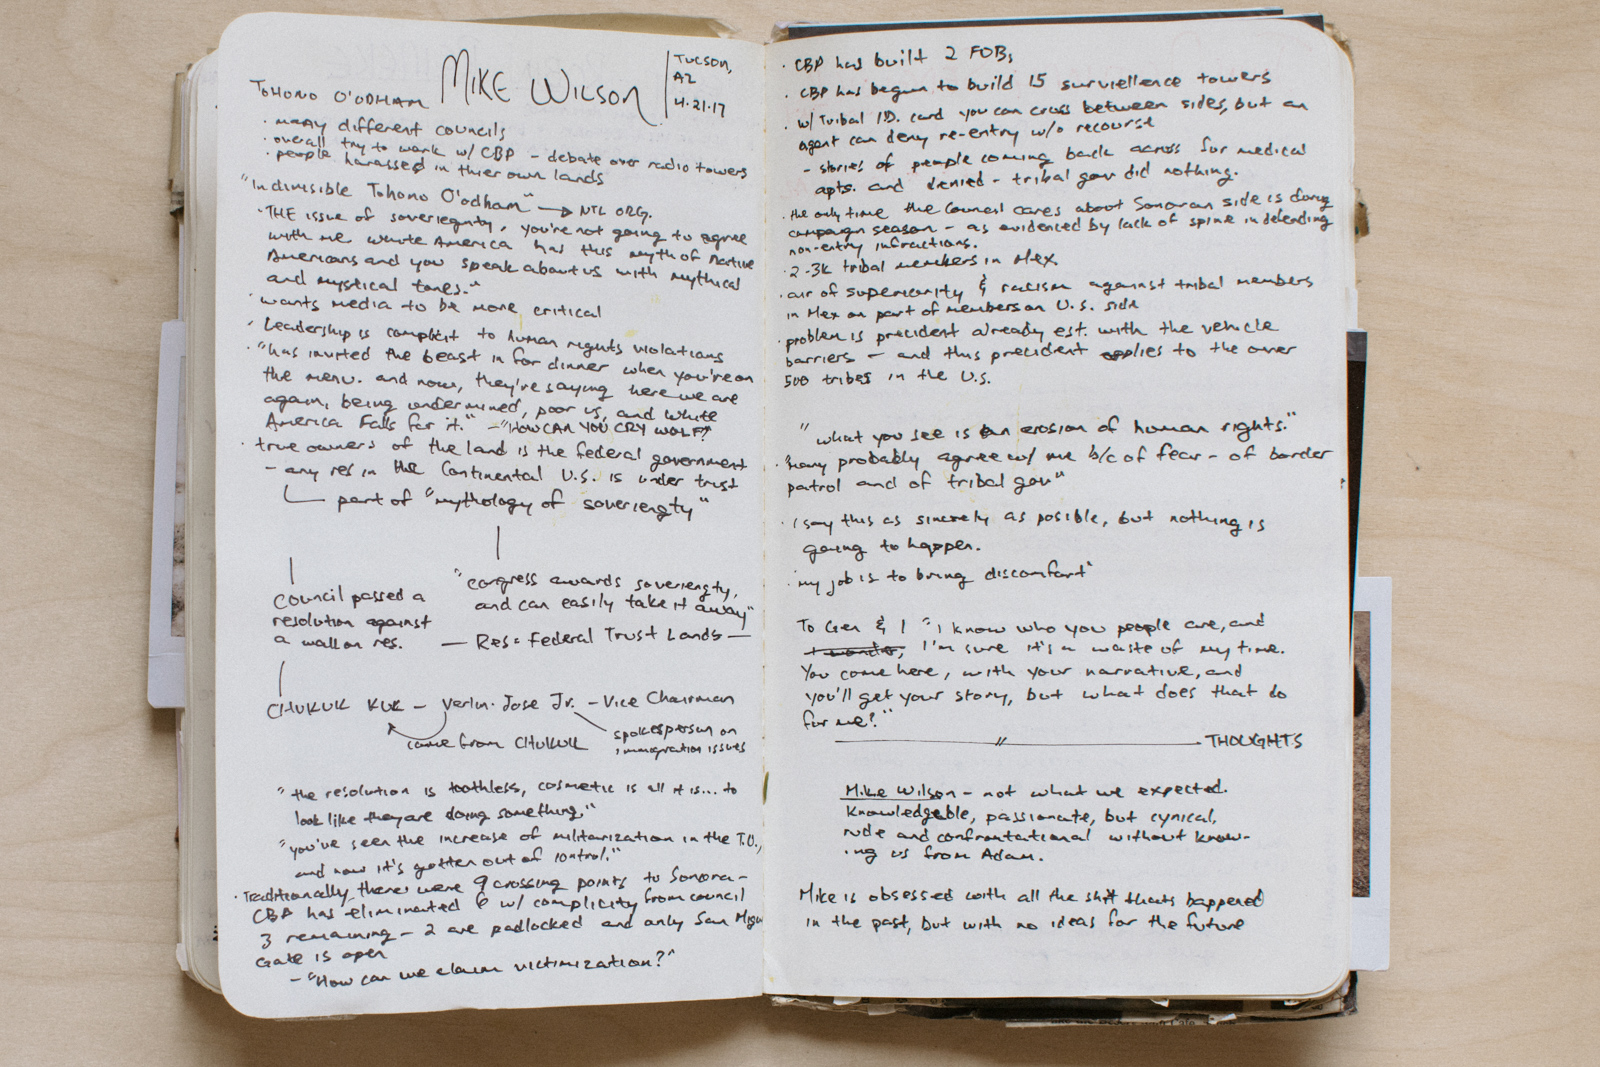 TOHONO O'ODHAM MIKE WILSON TUCSON, AZ 4.21.17
· many different councils
· overall try to work w/ CBP - debate over radio towers
· people harassed in thier own lands
"Indivisible Tohono O'odham" → NTL ORG.
· THE issue of soveriegnty, you're not going to agree
with me. white America has this myth of Native
Americans and you speak about us with mythical
and mystical tones."
· wants media to be more critical
· Leadership is complicit to human rights violations
· "has invited the beast in for dinner when you're on
the menu. and now, they're saying here we are
again, being undermined, poor us, and white
America Falls for it." - "HOW CAN YOU CRY WOLF?
· true owners of the land is the federal government
- any res in the Continental U.S. is under trust
part of "mythology of soveriengty"
Council passed a
resolution against
a wall on res.
"congress awards soveriengty,
and can easily take it away"
— Res = Federal Trust Lands —
CHUKUK KUK - Verlon Jose Jr. - Vice Chairman
came from CHUKUK
spokesperson on
immigration issues
"the resolution is toothless, cosmetic is all it is... to
look like they are doing something."
"you've seen the increase of militarization in the T.O.,
and now it's gotten out of control."
· Traditionally, there were 9 crossing points to Sonora -
CBP has eliminated 6 w/ complicity from council
3 remaining - 2 are padlocked and only San Migu
Gate is open
- "How can we claim victimization?"
· CBP has built 2 FOBs
· CBP has begun to build 15 surviellence towers
· w/ Tribal I.D. card you can cross between sides, but an
agent can deny re-entry w/o recourse
- stories of people coming back across for medical
apts. and denied - tribal gov did nothing.
· the only time the Council cares about Sonoran side is during
campaign season - as evidenced by lack of spine in defending
non-entry infractions.
· 2-3k tribal members in Mex.
· air of superiority & racism against tribal members
in Mex on part of members on U.S. side
· problem is precident already est. with the vehicle
barriers - and this precident applies to the over
500 tribes in the U.S.
"what you see is an erosion of human rights."
· "many probably agree w/ me b/c of fear - of border
patrol and of tribal gov"
· I say this as sincerely as posible, but nothing is
going to happen.
· "my job is to bring discomfort"
To Gen & I "I know who you people are, and
I wonder, I'm sure it's a waste of my time.
You come here, with your narrative, and
you'll get your story, but what does that do
for me?"
THOUGHTS
Mike Wilson - not what we expected.
Knowledgeble, passionate, but cynical,
rude and confrontational without know-
ing us from Adam.
Mike is obsessed with all the shit thats happened
in the past, but with no ideas for the future